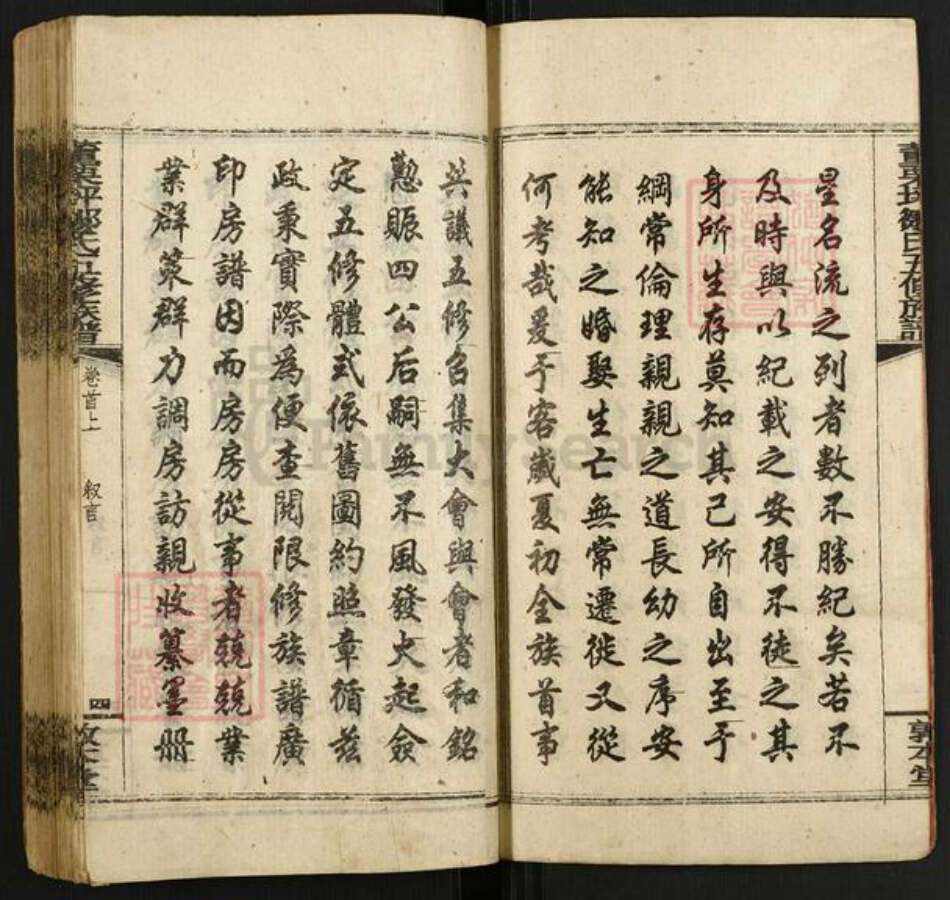 星名流之列者數不勝紀矣若不
及時與以紀載之安得不徒之其
身所生存莫知其已所自出至于
綱常倫理親親之道長幼之序安
能知之婚娶生亡無常遷徙又從
何考哉爰于客歲夏初全族首事
共議五修召集大會與會者和銘
懃賑四公后嗣無不風發火起僉
定五修體式依舊圖約照章循茲
政秉實際為便查閱限修族譜廣
印房譜因而房房從事者兢兢業
業群策群力調房訪親收纂墨册
卷首上
叙言
四
敦本堂
FamilySearch